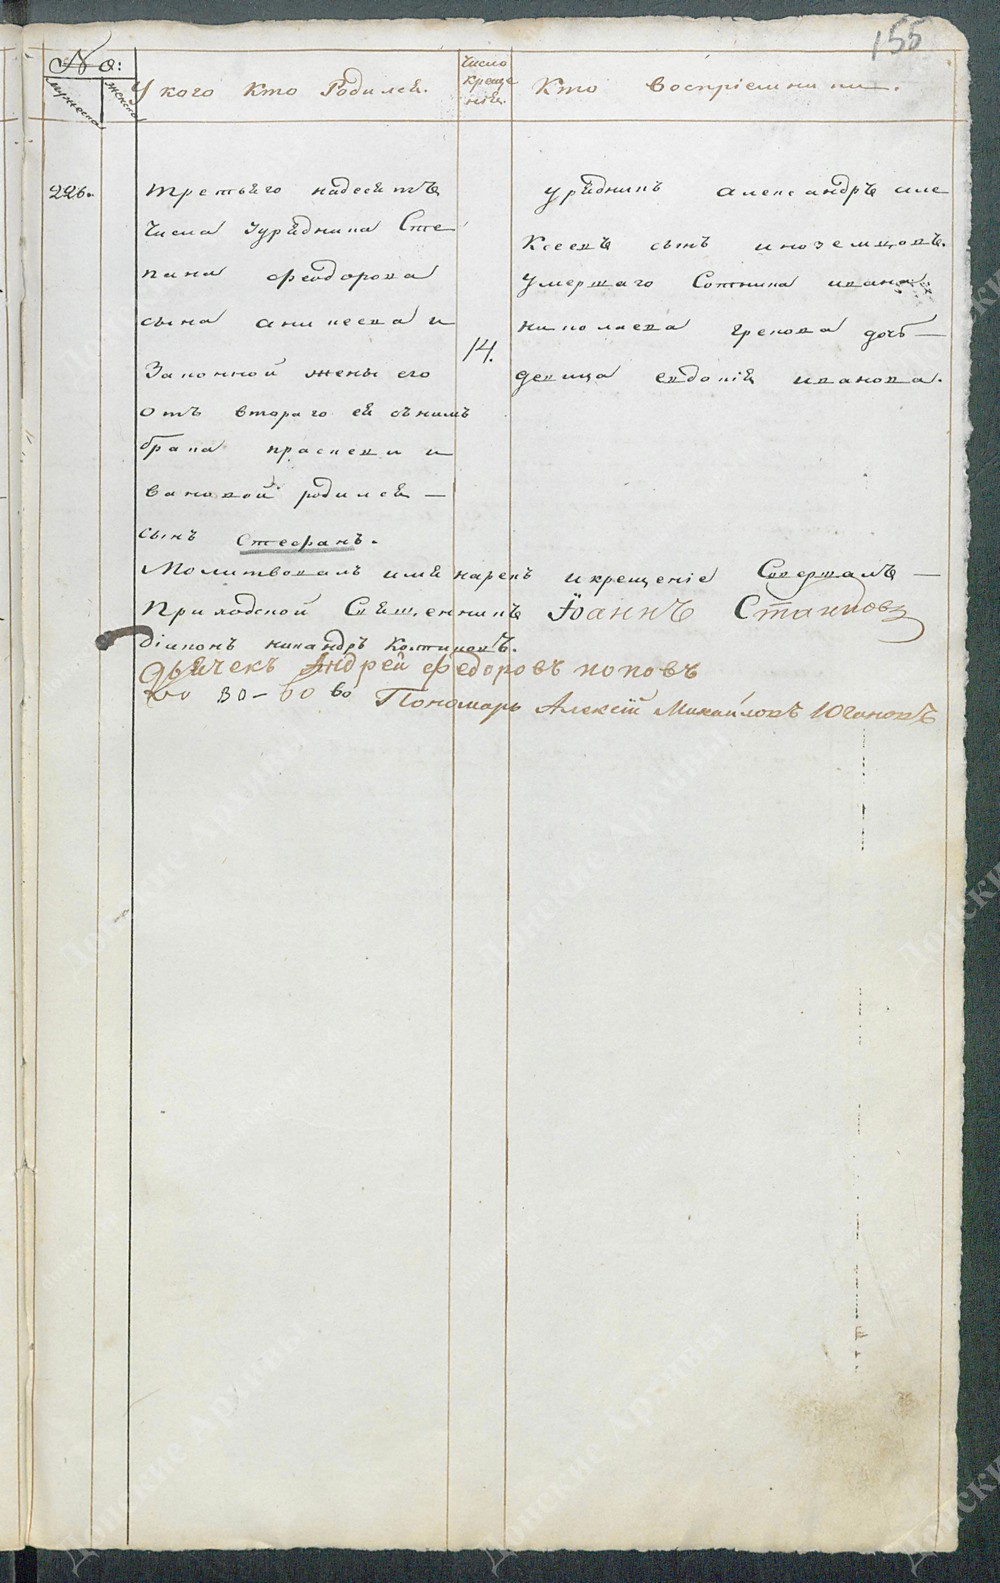 155
№:
мужеска
женска
У кого кто Родился.
число
креще
ния.
Кто восприемники.
226.
третьяго надесять
числа Уурядника Сте
пана Феодорова
сына аникеева и
Законной жены его
отъ втораго ей снимъ
брака праскеви и
вановой родился —
сынъ Стефанъ.
14.
урядникъ александръ але
ксеевъ сынъ иноземцовъ.
умершаго Сотника ивана
николаева грекова дочь —
девица евдокія иванова.
Молитвовалъ имя нарекъ икрещеніе Совершалъ —
Приходской Священникъ Іоаннъ
діаконъ никандръ
дьячекъ Андрей Федоровъ поповъ
Пономарь Алексій Михайловъ Югановъ